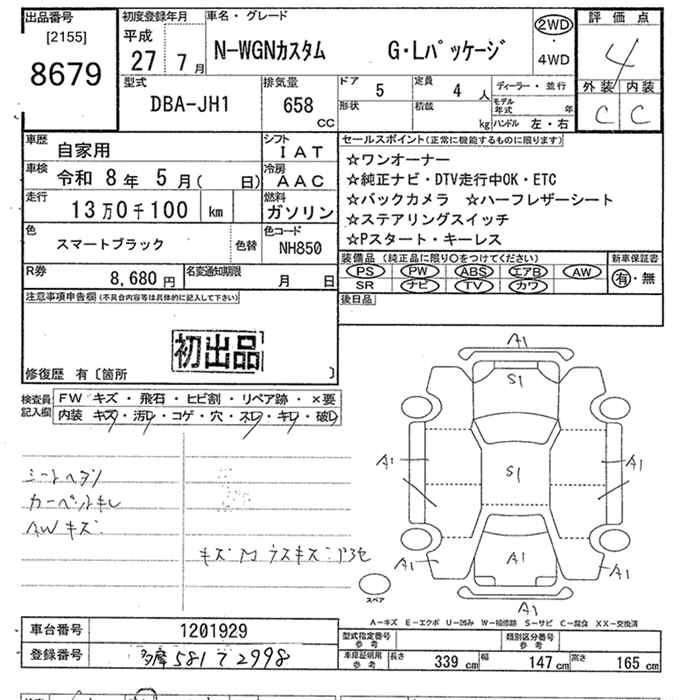 出品番号
[2155]
8679
初度登録年月
平成
27 7月
車名・グレード
N-WGNカスタム G・Lパッケージ
2WD
・
4WD
評価点
4
外装 内装
C C
型式
DBA-JH1
排気量
658 cc
ドア 5
定員 4 人
形状
積載 kg
ディーラー・並行
モデル年式 年
ハンドル 左・右
車歴
自家用
シフト
IAT
車検
令和 8年 5月( 日)
冷房
AAC
走行
13万0千100 km
燃料
ガソリン
色
スマートブラック
色替
色コード
NH850
R券
8,680円
名変通知期限
月 日
セールスポイント(正常に機能するものに限ります)
☆ワンオーナー
☆純正ナビ・DTV走行中OK・ETC
☆バックカメラ ☆ハーフレザーシート
☆ステアリングスイッチ
☆Pスタート・キーレス
装備品(純正品に限り○をつけてください)
PS PW ABS エアB AW
SR ナビ TV カワ
新車保証書
有・無
後日品
注意事項申告欄(不具合内容等は具体的に記入して下さい)
初出品
修復歴 有〔箇所 〕
検査員記入欄
FW キズ・飛石・ヒビ割・リペア跡・×要
内装 キズ・汚レ・コゲ・穴・スレ・キレ・破レ
シートヘタリ
カーペットキレ
AWキズ
A1
S1
A1
A1
S1
A1
A1
A1
A1
スペア
A-キズ E-エクボ U-凹み W-補修跡 S-サビ C-腐食 XX-交換済
車台番号
1201929
登録番号
多摩 581 て 2998
型式指定番号
参考
類別区分番号
参考
車庫証明用
参考
長さ 339 cm
幅 147 cm
高さ 165 cm